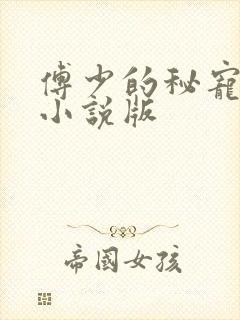 傅少的秘寵
小說版
帝國女孩